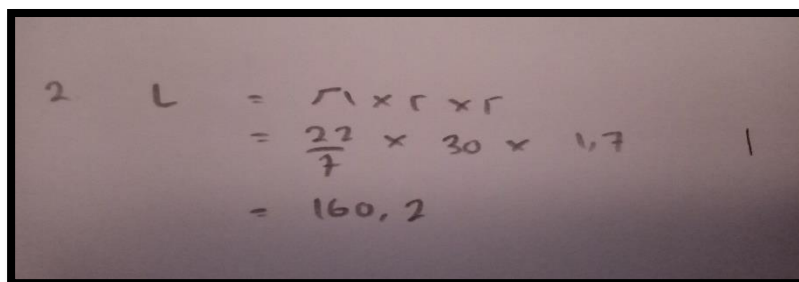 2 L = π × r × r
= 22/7 × 30 × 1,7 1
= 160,2